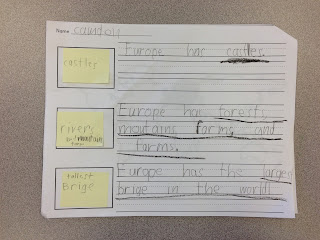 Name
Europe has castles.
castles
Europe has forests
mountains farms and
farms.
rivers
mountain
Europe has the larges
brige in the world.
tallest
Brige